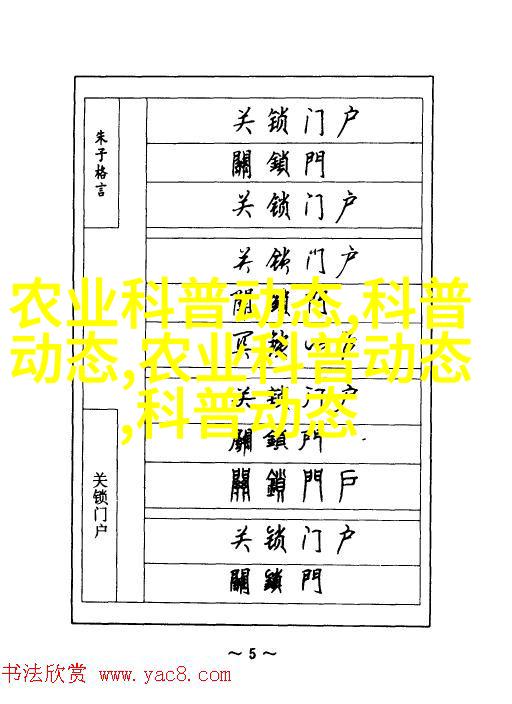 朱子格言
关锁门户
关锁门户
關鎖門
关锁门户
关锁门户
关锁门户
關鎖門
關鎖門戶
关锁门户
關鎖門
农业科普动态,科普
动态,农业科普动态
,科普动态
~ 5 ~
书法欣赏 www.yac8.com